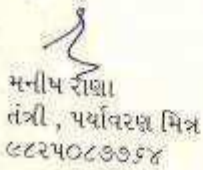 મનીષ રાણા
તંત્રી , પર્યાવરણ મિત્ર
૯૮૨૫૦૮૭૭૬૪